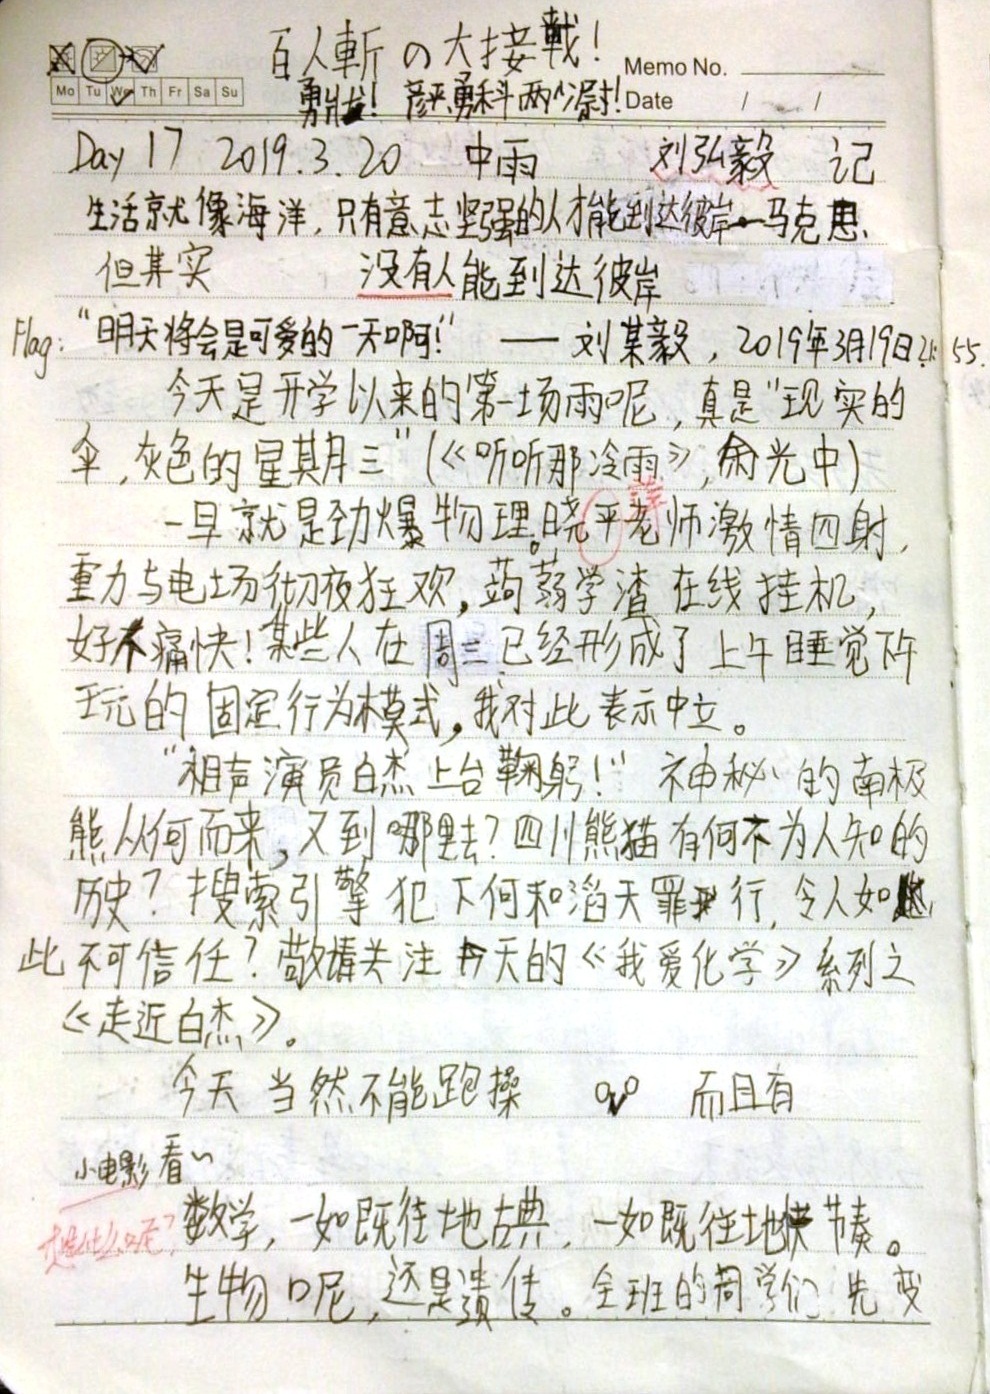 百人斬の大接戦!
Memo No.
Mo Tu We Th Fr Sa Su
勇壮! 彦平勇科两ペ谢!
Date / /
Day 17 2019.3.20 中雨 刘弘毅 记
生活就像海洋,只有意志坚强的人才能到达彼岸—马克思.
但其实 没有人能到达彼岸
Flag: “明天将会是可爱的一天啊!” —— 刘某毅, 2019年3月19日21:55.
今天是开学以来的第一场雨呢,真是“现实的
伞,灰色的星期三”(《听听那冷雨》,余光中)
一早就是劲爆物理。晓平老师激情四射,
萍
重力与电场彻夜狂欢,蒟蒻学渣在线挂机,
好不痛快!某些人在周三已经形成了上午睡觉下午
玩的固定行为模式,我对此表示中立。
“相声演员白杰上台鞠躬!” 神秘的南极
熊从何而来,又到哪里去?四川熊猫有何不为人知的
历史?搜索引擎犯下何和滔天罪行,令人如
此不可信任?敬请关注今天的《我爱化学》系列之
《走近白杰》。
今天当然不能跑操 OvO 而且有
小电影看~
想什么呢?
数学,一如既往地古典,一如既往地快节奏。
生物呢,还是遗传。全班的同学们先变